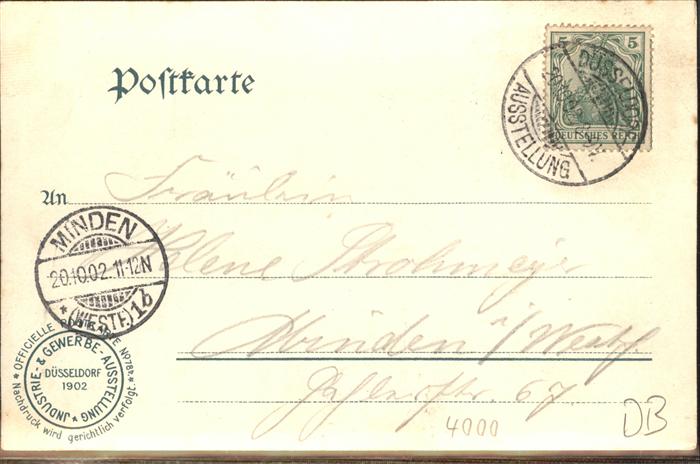 Postkarte
5 5
DEUTSCHES REICH
DÜSSELDORF
AUSSTELLUNG
An Fräulein
Helene Strohmeyer
Minden i/Westf
67
MINDEN
20.10.02.11-12N
* (WESTF.) 1b
* OFFICIELLE POSTKARTE No 787. * Nachdruck wird gerichtlich verfolgt.
JNDUSTRIE- & GEWERBE-AUSSTELLUNG *
DÜSSELDORF
1902
4000
DB